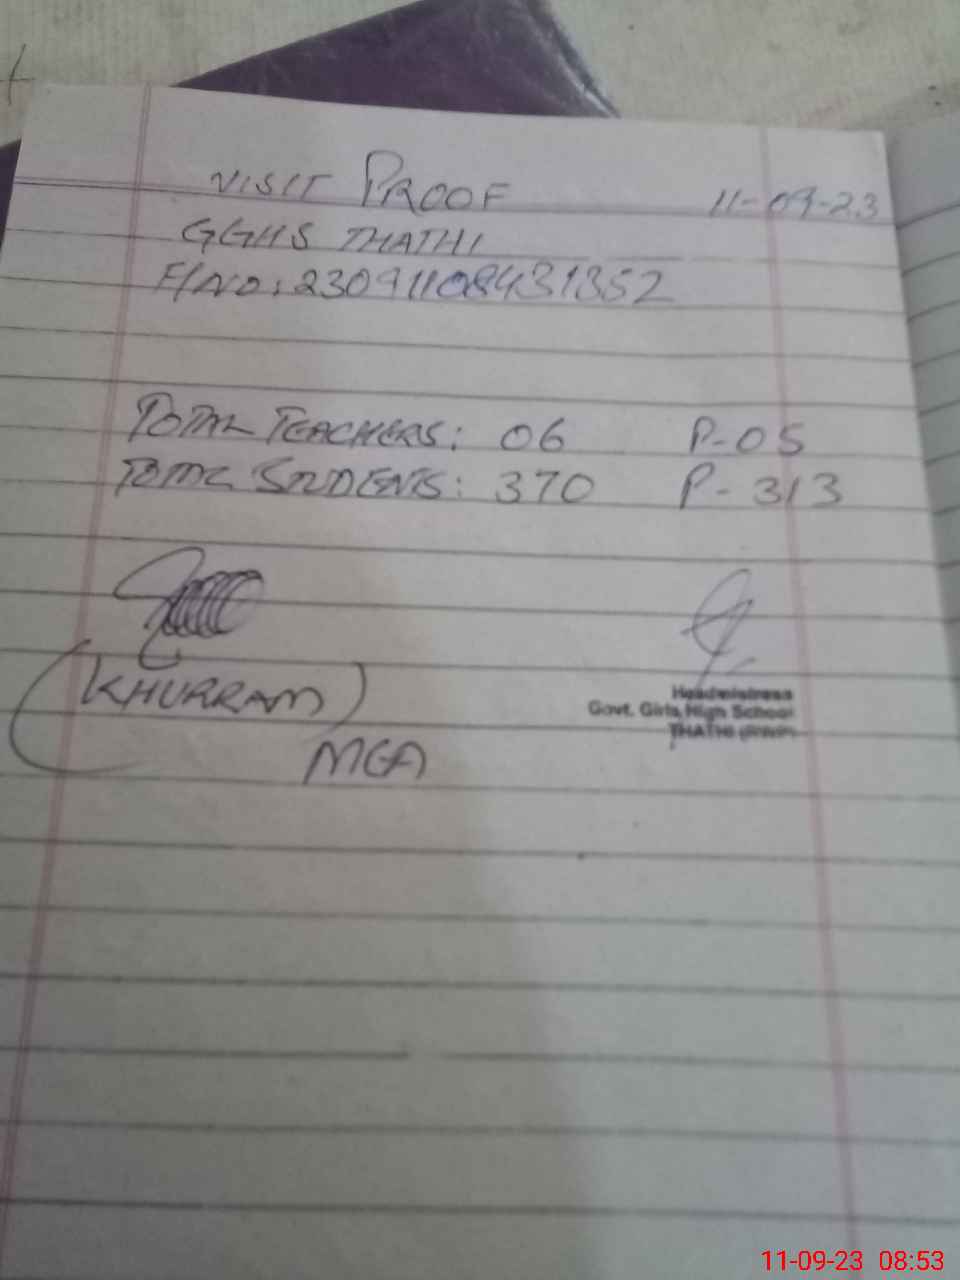 VISIT PROOF 11-09-23
GGHS THATHI
F/NO: 23091108431352
TOTAL TEACHERS: 06 P-05
TOTAL STUDENTS: 370 P-313
(KHURRAM)
MEA
Headmistress
Govt. Girls High School
THATHI
11-09-23 08:53